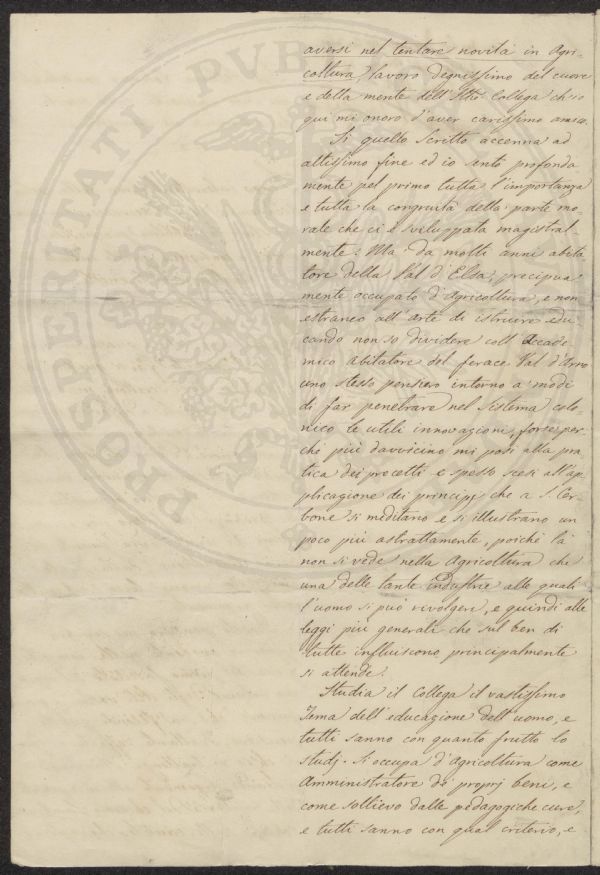 aversi nel tentare novità in Agri-
coltura, lavoro degnissimo del cuore
e della mente dell'Ill.o Collega ch'io
qui mi onoro d'aver carissimo amico.
Sì quello scritto accenna ad
altissimo fine ed io sento profonda
mente pel primo tutta l'importanza
e tutta la congruità della parte mo-
rale che ci è sviluppata magistral-
mente: Ma da molti anni abita
tore della Val d'Elsa, precipua
mente occupato d'Agricoltura, e non
estraneo all'arte di istruire edu
cando non so dividere coll'Accade
mico abitatore del ferace Val d'Arno
uno stesso pensiero intorno a' modi
di far penetrare nel sistema colo
nico le utili innovazioni, forse per-
chè più davvicino mi posi alla pra
tica dei precetti e spesso scesi all'ap
plicazione dei principj che a S. Cer-
bone si meditano e si illustrano un
poco più astrattamente, poichè là
non si vede nella Agricoltura che
una delle tante industrie alle quali
l'uomo si può rivolgere, e quindi alle
leggi più generali che sul ben di
tutte influiscono principalmente
si attende.
Studia il Collega il vastissimo
Tema dell'educazione dell'uomo, e
tutti sanno con quanto frutto lo
studj. Si occupa d'Agricoltura come
Amministratore dei proprj beni, e
come sollievo dalle pedagogiche cure,
e tutti sanno con qual criterio, e
PROSPERITATI PVBL